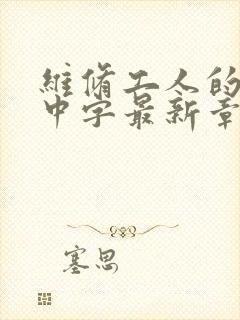 維脩工人的
中字最新章
塞思